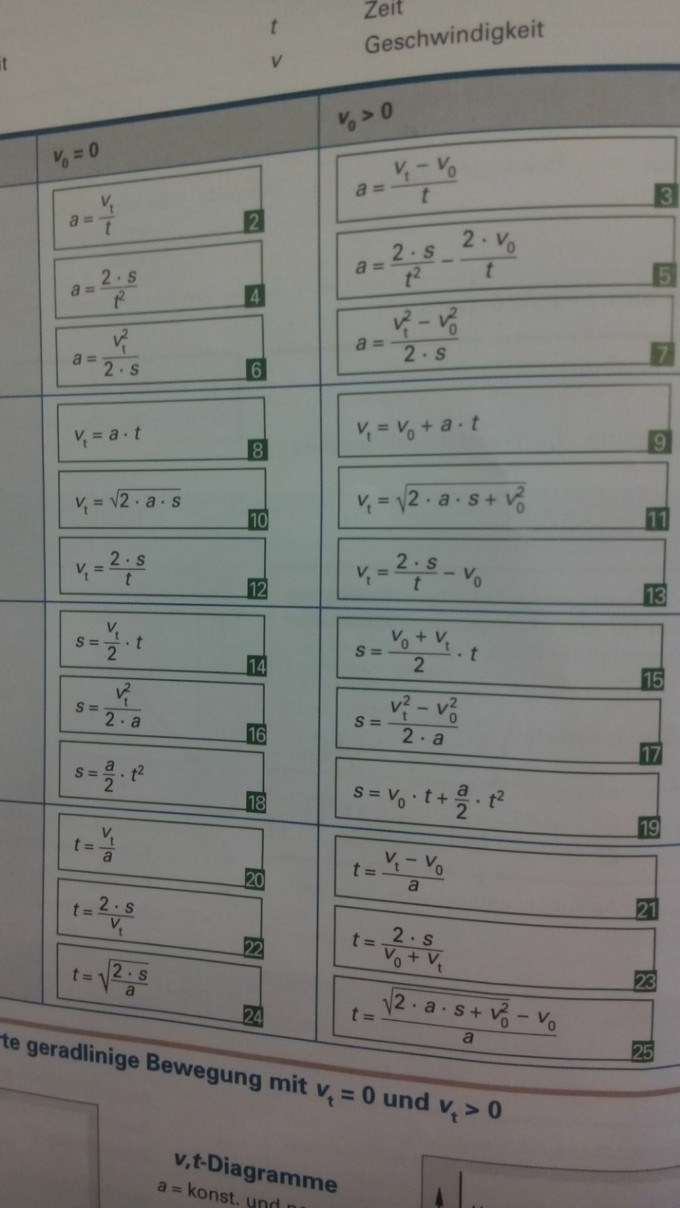 t Zeit
it v Geschwindigkeit
v₀ = 0 v₀ > 0
a = vₜ/t 2 a = (vₜ − v₀)/t 3
a = (2 · s)/t² 4 a = (2 · s)/t² − (2 · v₀)/t 5
a = vₜ²/(2 · s) 6 a = (vₜ² − v₀²)/(2 · s) 7
vₜ = a · t 8 vₜ = v₀ + a · t 9
vₜ = √(2 · a · s) 10 vₜ = √(2 · a · s + v₀²) 11
vₜ = (2 · s)/t 12 vₜ = (2 · s)/t − v₀ 13
s = vₜ/2 · t 14 s = (v₀ + vₜ)/2 · t 15
s = vₜ²/(2 · a) 16 s = (vₜ² − v₀²)/(2 · a) 17
s = a/2 · t² 18 s = v₀ · t + a/2 · t² 19
t = vₜ/a 20 t = (vₜ − v₀)/a 21
t = (2 · s)/vₜ 22 t = (2 · s)/(v₀ + vₜ) 23
t = √((2 · s)/a) 24 t = (√(2 · a · s + v₀²) − v₀)/a 25
rte geradlinige Bewegung mit vₜ = 0 und vₜ > 0
v,t-Diagramme
a = konst. und